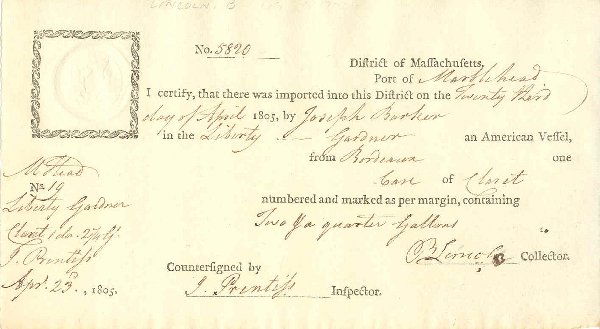 LINCOLN, B
No. 5820
District of Massachusetts,
Port of Marblehead
I certify, that there was imported into this District on the Twenty third
day of April 1805, by Joseph Barker
in the Liberty Gardner an American Vessel,
from Bordeaux one
Case of Claret
numbered and marked as per margin, containing
Two & a quarter Gallons
B Lincoln Collector.
Countersigned by
J. Prentiss Inspector.
M Head
No 19
Liberty Gardner
Claret 1
J. Prentiss
Apr. 23d, 1805.